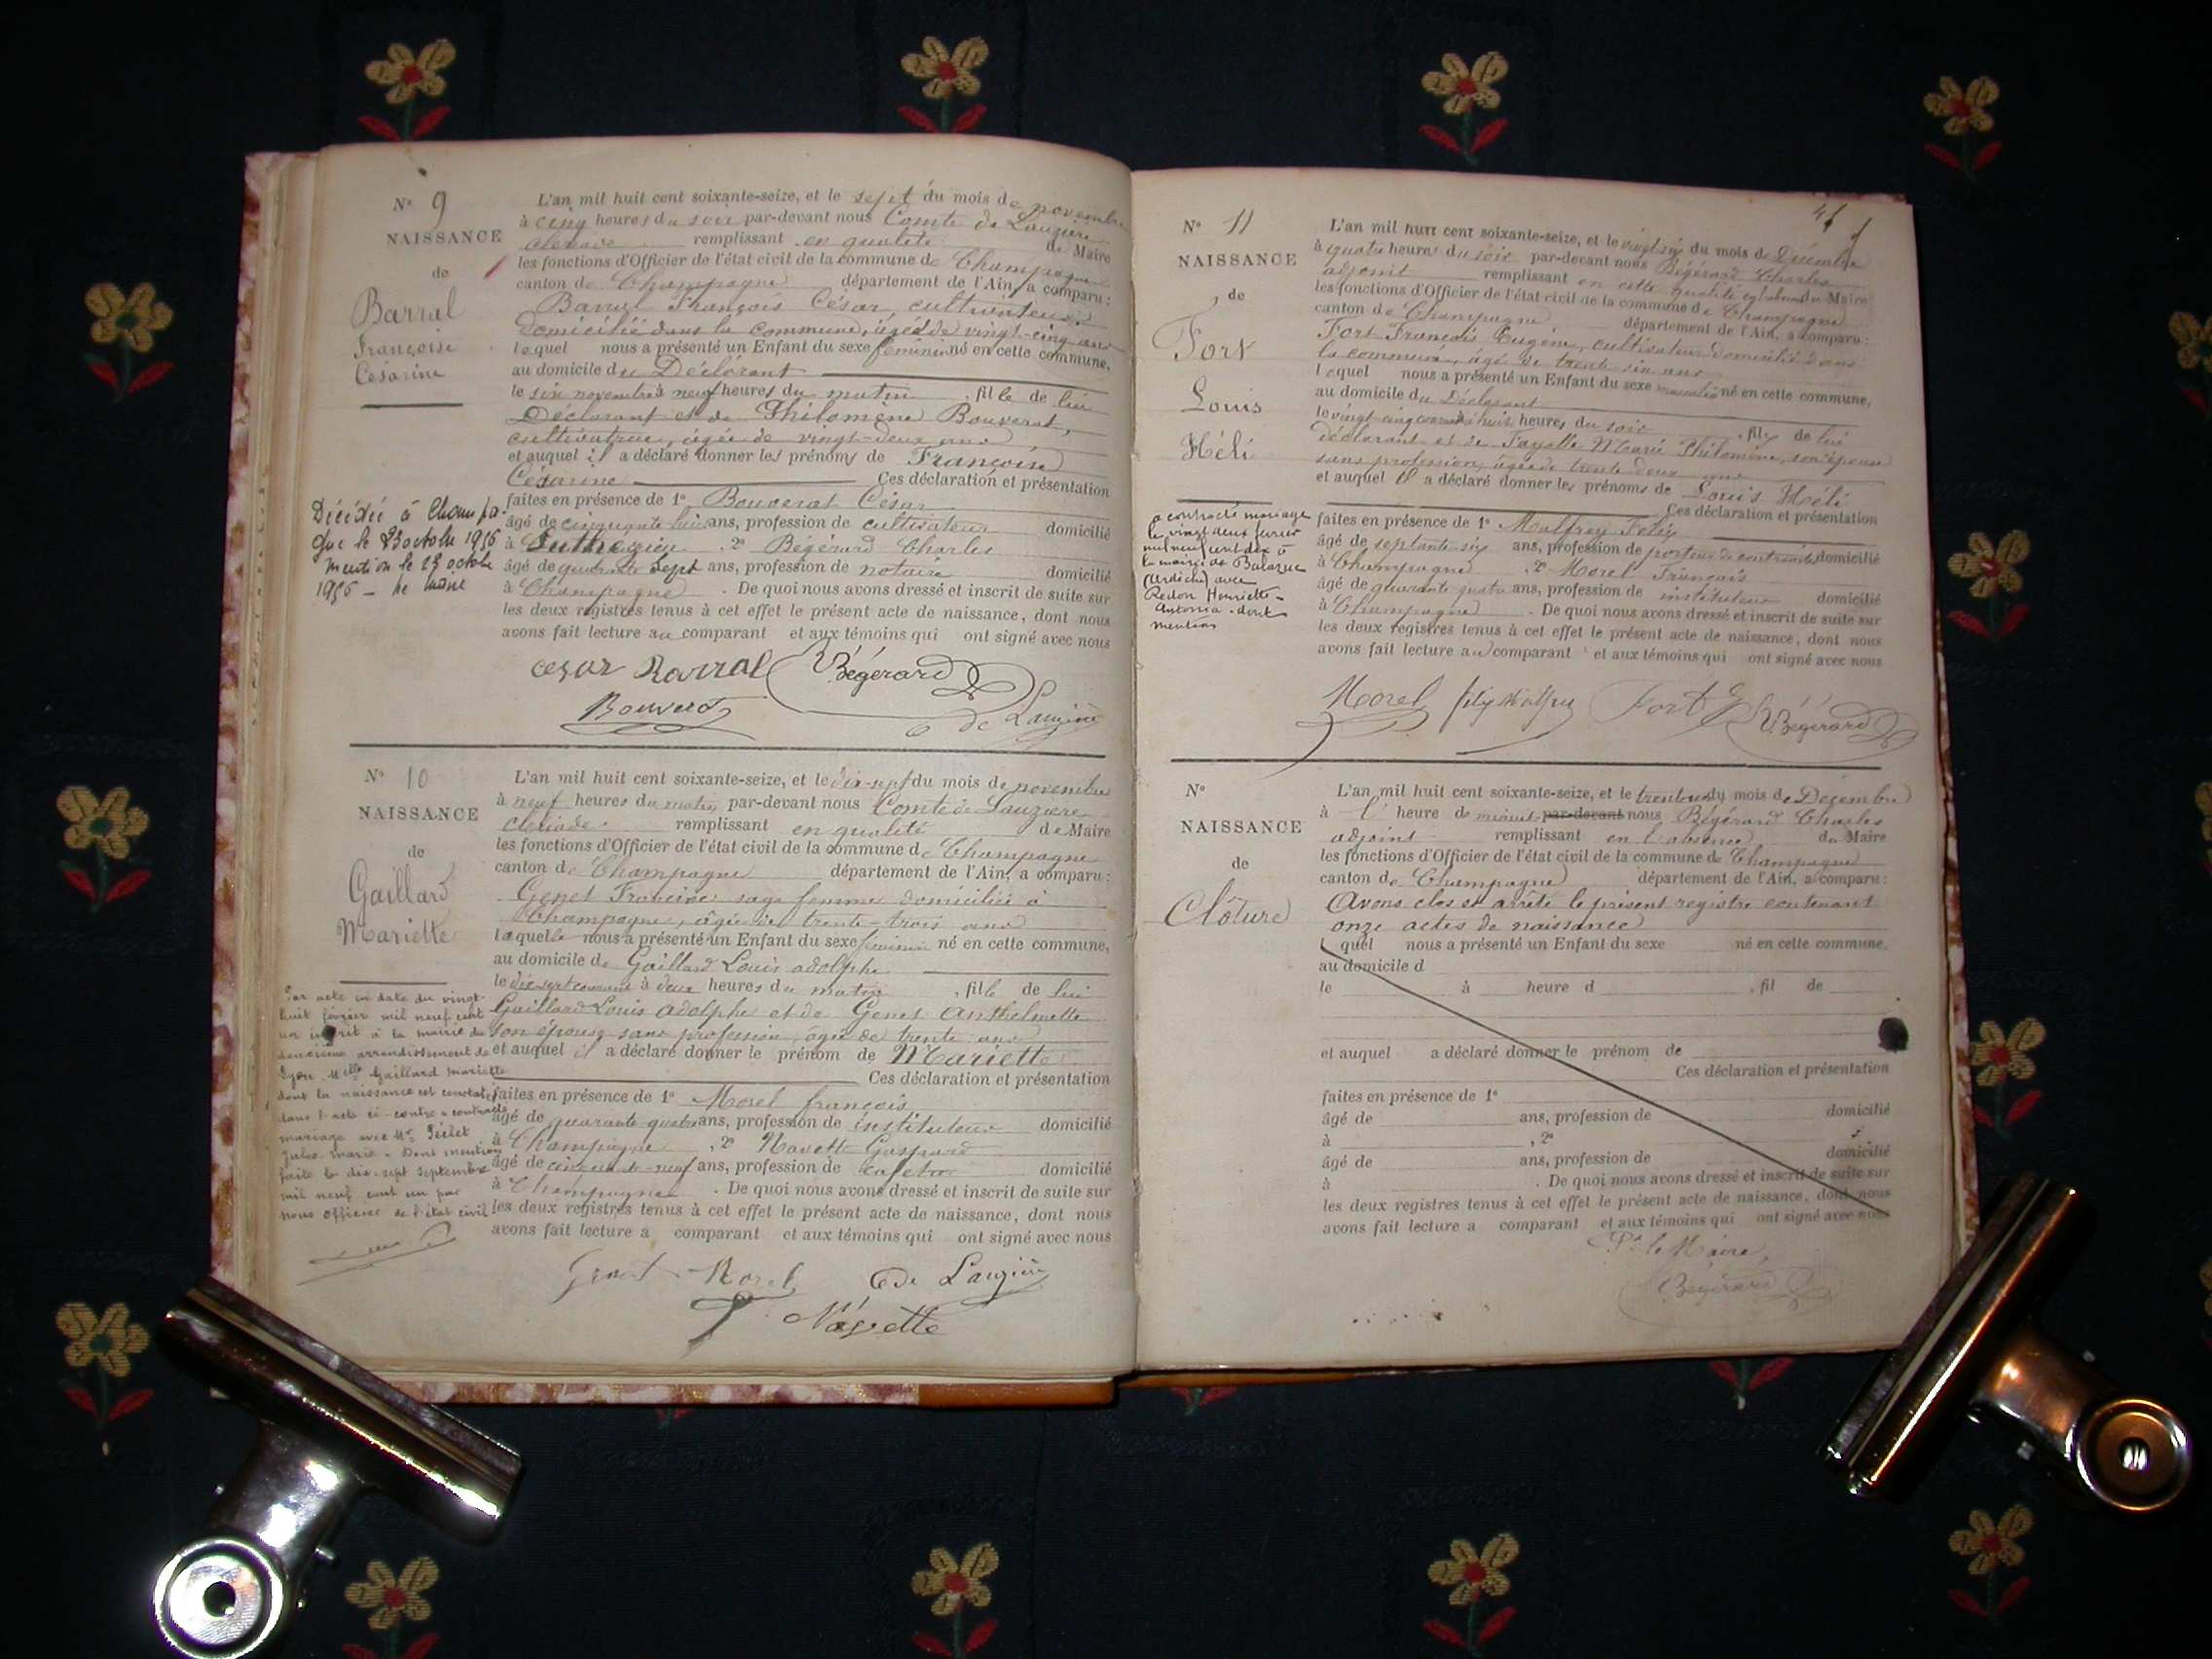 N° 9
NAISSANCE
de
Barral
Françoise
Césarine
L'an mil huit cent soixante-seize, et le sept du mois de novembre
à cinq heures du soir par-devant nous Comte de Lauzière
remplissant en qualité de Maire
les fonctions d'Officier de l'état civil de la commune de Champagne
canton de Champagne département de l'Ain, a comparu:
Barral François César, cultivateur
domicilié dans la commune, âgé de vingt-cinq ans
lequel nous a présenté un Enfant du sexe féminin né en cette commune,
au domicile du Déclarant
le six novembre à neuf heures du matin, fille de lui
Déclarant et de Philomène Bouverat,
cultivatrice, âgée de vingt-deux ans
et auquel il a déclaré donner les prénoms de Françoise
Césarine Ces déclaration et présentation
faites en présence de 1° Bouverat César
âgé de cinquante huit ans, profession de cultivateur domicilié
à Luthézieu, 2° Bégérard Charles
âgé de quarante sept ans, profession de notaire domicilié
à Champagne. De quoi nous avons dressé et inscrit de suite sur
les deux registres tenus à cet effet le présent acte de naissance, dont nous
avons fait lecture au comparant et aux témoins qui ont signé avec nous
Décédée à Champa-
gne le 23 octobre 1956
Mention le 23 octobre
1956 - le maire
César Barral Bégérard
Bouverat de Lauzière
N° 10
NAISSANCE
de
Gaillard
Mariette
L'an mil huit cent soixante-seize, et le dix-sept du mois de novembre
à neuf heures du matin par-devant nous Comte de Lauzière
remplissant en qualité de Maire
les fonctions d'Officier de l'état civil de la commune de Champagne
canton de Champagne département de l'Ain, a comparu:
Genet Francise sage femme domiciliée à
Champagne, âgée de trente-trois ans
laquelle nous a présenté un Enfant du sexe féminin né en cette commune,
au domicile de Gaillard Louis adolphe
le dix sept courant à deux heures du matin, fille de lui
Gaillard Louis Adolphe et de Genet Anthelmette
son épouse sans profession, âgée de trente ans
et auquel il a déclaré donner le prénom de Mariette
Ces déclaration et présentation
faites en présence de 1° Morel françois
âgé de quarante quatre ans, profession de instituteur domicilié
à Champagne, 2° Navette Gaspard
âgé de cinquante-neuf ans, profession de cafetier domicilié
à Champagne. De quoi nous avons dressé et inscrit de suite sur
les deux registres tenus à cet effet le présent acte de naissance, dont nous
avons fait lecture a comparant et aux témoins qui ont signé avec nous
Par acte en date du vingt-
huit février mil neuf cent
un inscrit à la mairie du
deuxième arrondissement de
Lyon, Melle Gaillard Mariette
dont la naissance est constatée
dans l'acte ci-contre a contracté
mariage avec Mr
Jules Marie. Dont mention
faite le dix-sept Septembre
mil neuf cent un par
nous officier de l'état civil.
Genet Morel C de Lauzière
Navette
N° 11
NAISSANCE
de
Fort
Louis
Héli
L'an mil huit cent soixante-seize, et le vingt six du mois de Décembre
à quatre heures du soir par-devant nous Bégérard Charles
adjoint remplissant en cette qualité du Maire
les fonctions d'Officier de l'état civil de la commune de Champagne
canton de Champagne département de l'Ain, a comparu:
Fort François Eugène, cultivateur domicilié dans
la commune, âgé de trente six ans
lequel nous a présenté un Enfant du sexe masculin né en cette commune,
au domicile du Déclarant
le vingt cinq courant à huit heures du soir, fils de lui
déclarant et de Fayolle Marie Philomène, son épouse
sans profession, âgée de trente deux ans
et auquel il a déclaré donner les prénoms de Louis Héli
Ces déclaration et présentation
faites en présence de 1° Malfrey Félix
âgé de septante six ans, profession de porteur de contraintes, domicilié
à Champagne, 2° Morel François
âgé de quarante quatre ans, profession de instituteur domicilié
à Champagne. De quoi nous avons dressé et inscrit de suite sur
les deux registres tenus à cet effet le présent acte de naissance, dont nous
avons fait lecture au comparant et aux témoins qui ont signé avec nous
a contracté mariage
le vingt deux février
mil neuf cent dix à
la mairie de Balazuc
(Ardèche) avec
Redon Henriette-
Antonia - dont
mention
Morel félix Malfrey Fort E Bégérard
N°
NAISSANCE
de
Clôture
L'an mil huit cent soixante-seize, et le trente un du mois de Décembre
à l' heure de minuit par-devant nous Bégérard Charles
adjoint remplissant en l'absence du Maire
les fonctions d'Officier de l'état civil de la commune de Champagne
canton de Champagne département de l'Ain, a comparu:
Avons clos et arrêté le présent registre contenant
onze actes de naissance
l quel nous a présenté un Enfant du sexe né en cette commune,
au domicile d
le à heure d , fil de
et auquel a déclaré donner le prénom de
Ces déclaration et présentation
faites en présence de 1°
âgé de ans, profession de domicilié
à , 2°
âgé de ans, profession de domicilié
à . De quoi nous avons dressé et inscrit de suite sur
les deux registres tenus à cet effet le présent acte de naissance, dont nous
avons fait lecture a comparant et aux témoins qui ont signé avec nous
Pr le Maire,
Bégérard